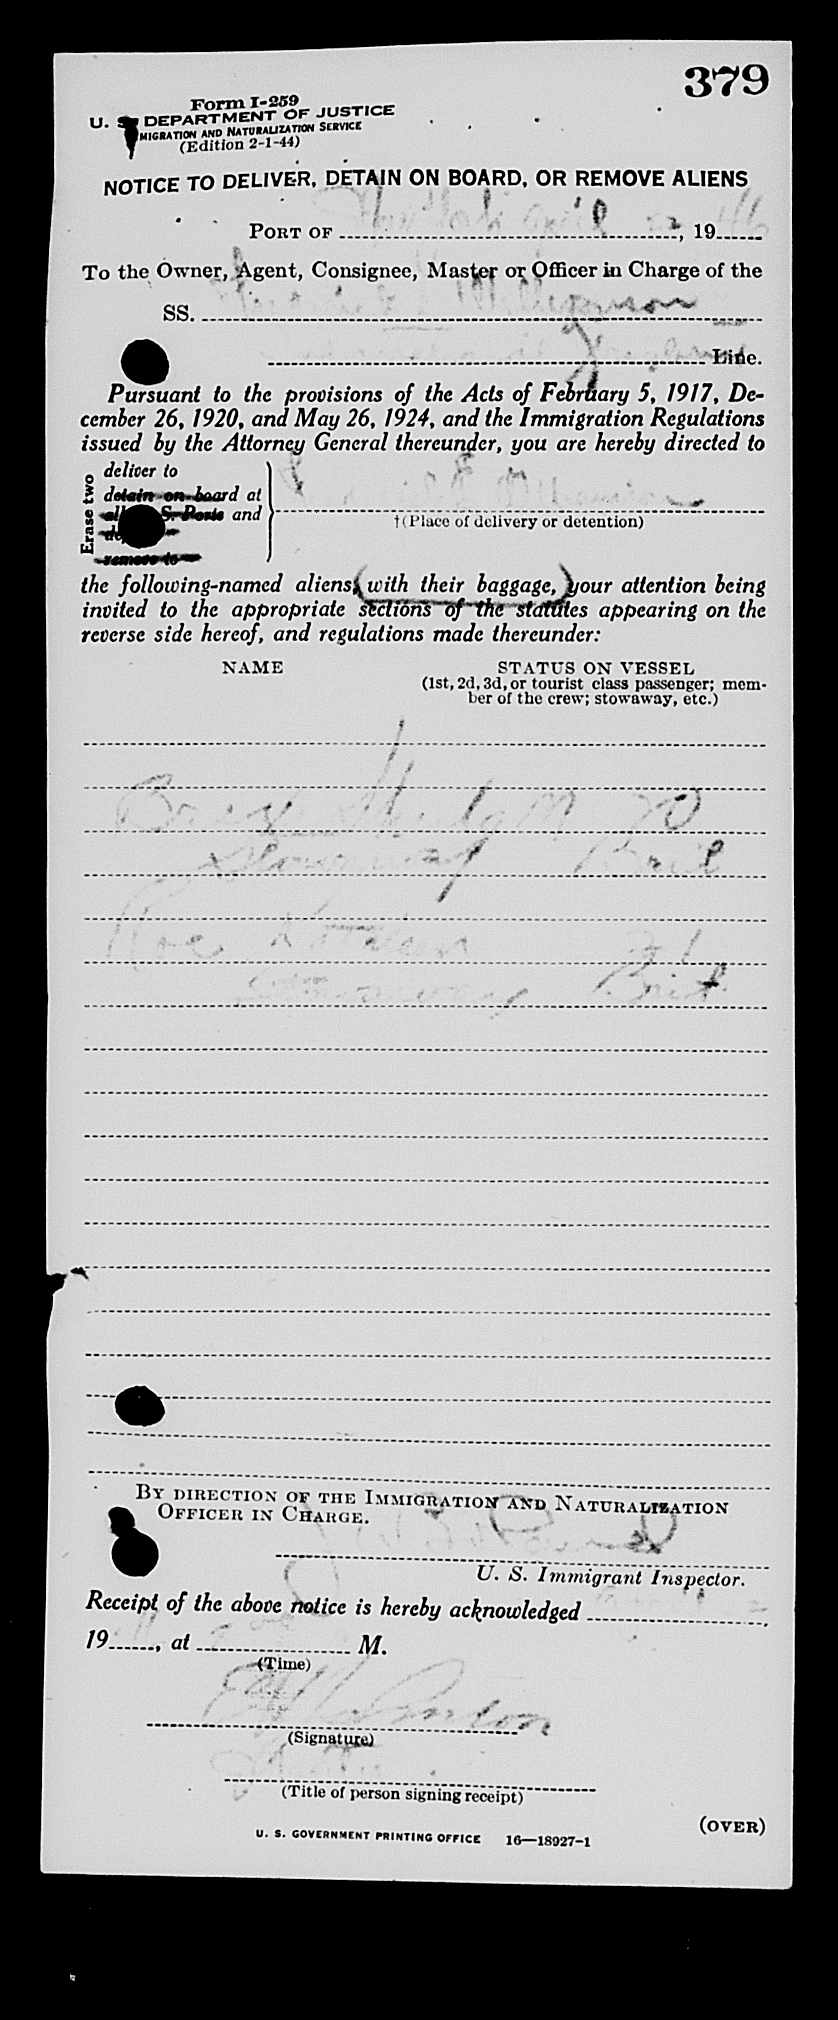 379
Form I-259
U. S. DEPARTMENT OF JUSTICE
IMMIGRATION AND NATURALIZATION SERVICE
(Edition 2-1-44)
NOTICE TO DELIVER, DETAIN ON BOARD, OR REMOVE ALIENS
PORT OF New York April 22, 1946
To the Owner, Agent, Consignee, Master or Officer in Charge of the
SS. Williamson
Line.
Pursuant to the provisions of the Acts of February 5, 1917, De-
cember 26, 1920, and May 26, 1924, and the Immigration Regulations
issued by the Attorney General thereunder, you are hereby directed to
Erase two
deliver to
detain on board at
all U. S. Ports and
remove to
†(Place of delivery or detention)
the following-named aliens, (with their baggage,) your attention being
invited to the appropriate sections of the statutes appearing on the
reverse side hereof, and regulations made thereunder:
NAME STATUS ON VESSEL
(1st, 2d, 3d, or tourist class passenger; mem-
ber of the crew; stowaway, etc.)
20
Stowaway Brit
Roe Kathleen 21
Stowaway Brit
BY DIRECTION OF THE IMMIGRATION AND NATURALIZATION
OFFICER IN CHARGE.
U. S. Immigrant Inspector.
Receipt of the above notice is hereby acknowledged
19......, at M.
(Time)
(Signature)
(Title of person signing receipt)
(OVER)
U. S. GOVERNMENT PRINTING OFFICE 16—18927-1